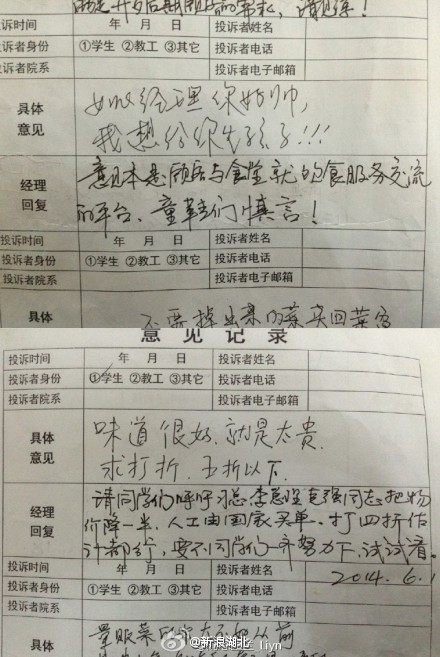 投诉时间 年 月 日 投诉者姓名
投诉者身份 ①学生 ②教工 ③其它 投诉者电话
投诉者院系 投诉者电子邮箱
具体意见
经理你好帅,
我想给你生孩子!!!
经理回复
意见本是顾客与食堂就的食服务交流
的平台、童鞋们慎言!
投诉时间 年 月 日 投诉者姓名
投诉者身份 ①学生 ②教工 ③其它 投诉者电话
投诉者院系 投诉者电子邮箱
具体
不要掉出来的菜夹回菜
意见记录
投诉时间 年 月 日 投诉者姓名
投诉者身份 ①学生 ②教工 ③其它 投诉者电话
投诉者院系 投诉者电子邮箱
具体意见
味道很好.就是太贵.
求打折.五折以下.
经理回复
请同学们呼呼习总.李总理克强同志.把物
价降一半.人工由国家买单..打四折估
计都行,要不同学们一齐努力下,试试看.
2014.6.1
投诉时间 年 月 日 投诉者姓名
投诉者身份 ①学生 ②教工 ③其它 投诉者电话
投诉者院系 投诉者电子邮箱
量贩菜
@新浪湖北